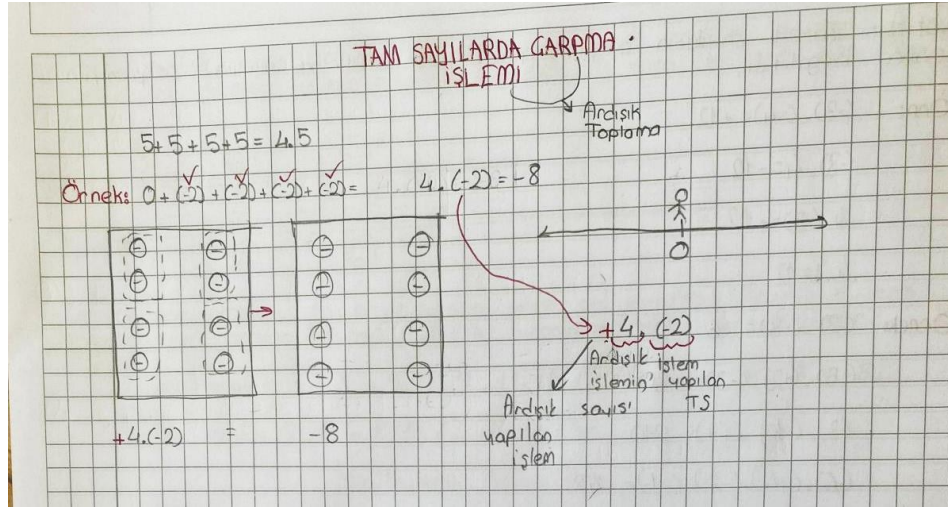 TAM SAYILARDA ÇARPMA
İŞLEMİ
Ardışık
Toplama
5+5+5+5= 4.5
Örnek: 0+(-2)+(-2)+(-2)+(-2)=
4.(-2)=-8
0
+4.(-2)
Ardışık
işlemin
sayısı
işlem
yapılan
TS
Ardışık
yapılan
işlem
+4.(-2) = -8